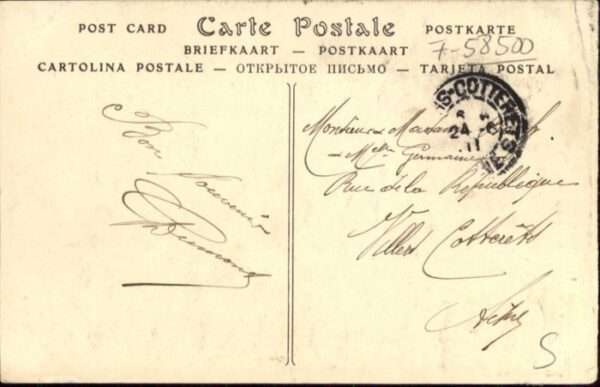 POST CARD Carte Postale POSTKARTE
BRIEFKAART — POSTKAART
CARTOLINA POSTALE — ОТКРЫТОЕ ПИСЬМО — TARJETA POSTAL
7-58500
S-COTTERETS
24
11
Bon Souvenir
Monsieur Madame
Melle Germaine
Rue de la République
Villers Cotterêts
Aisne
S